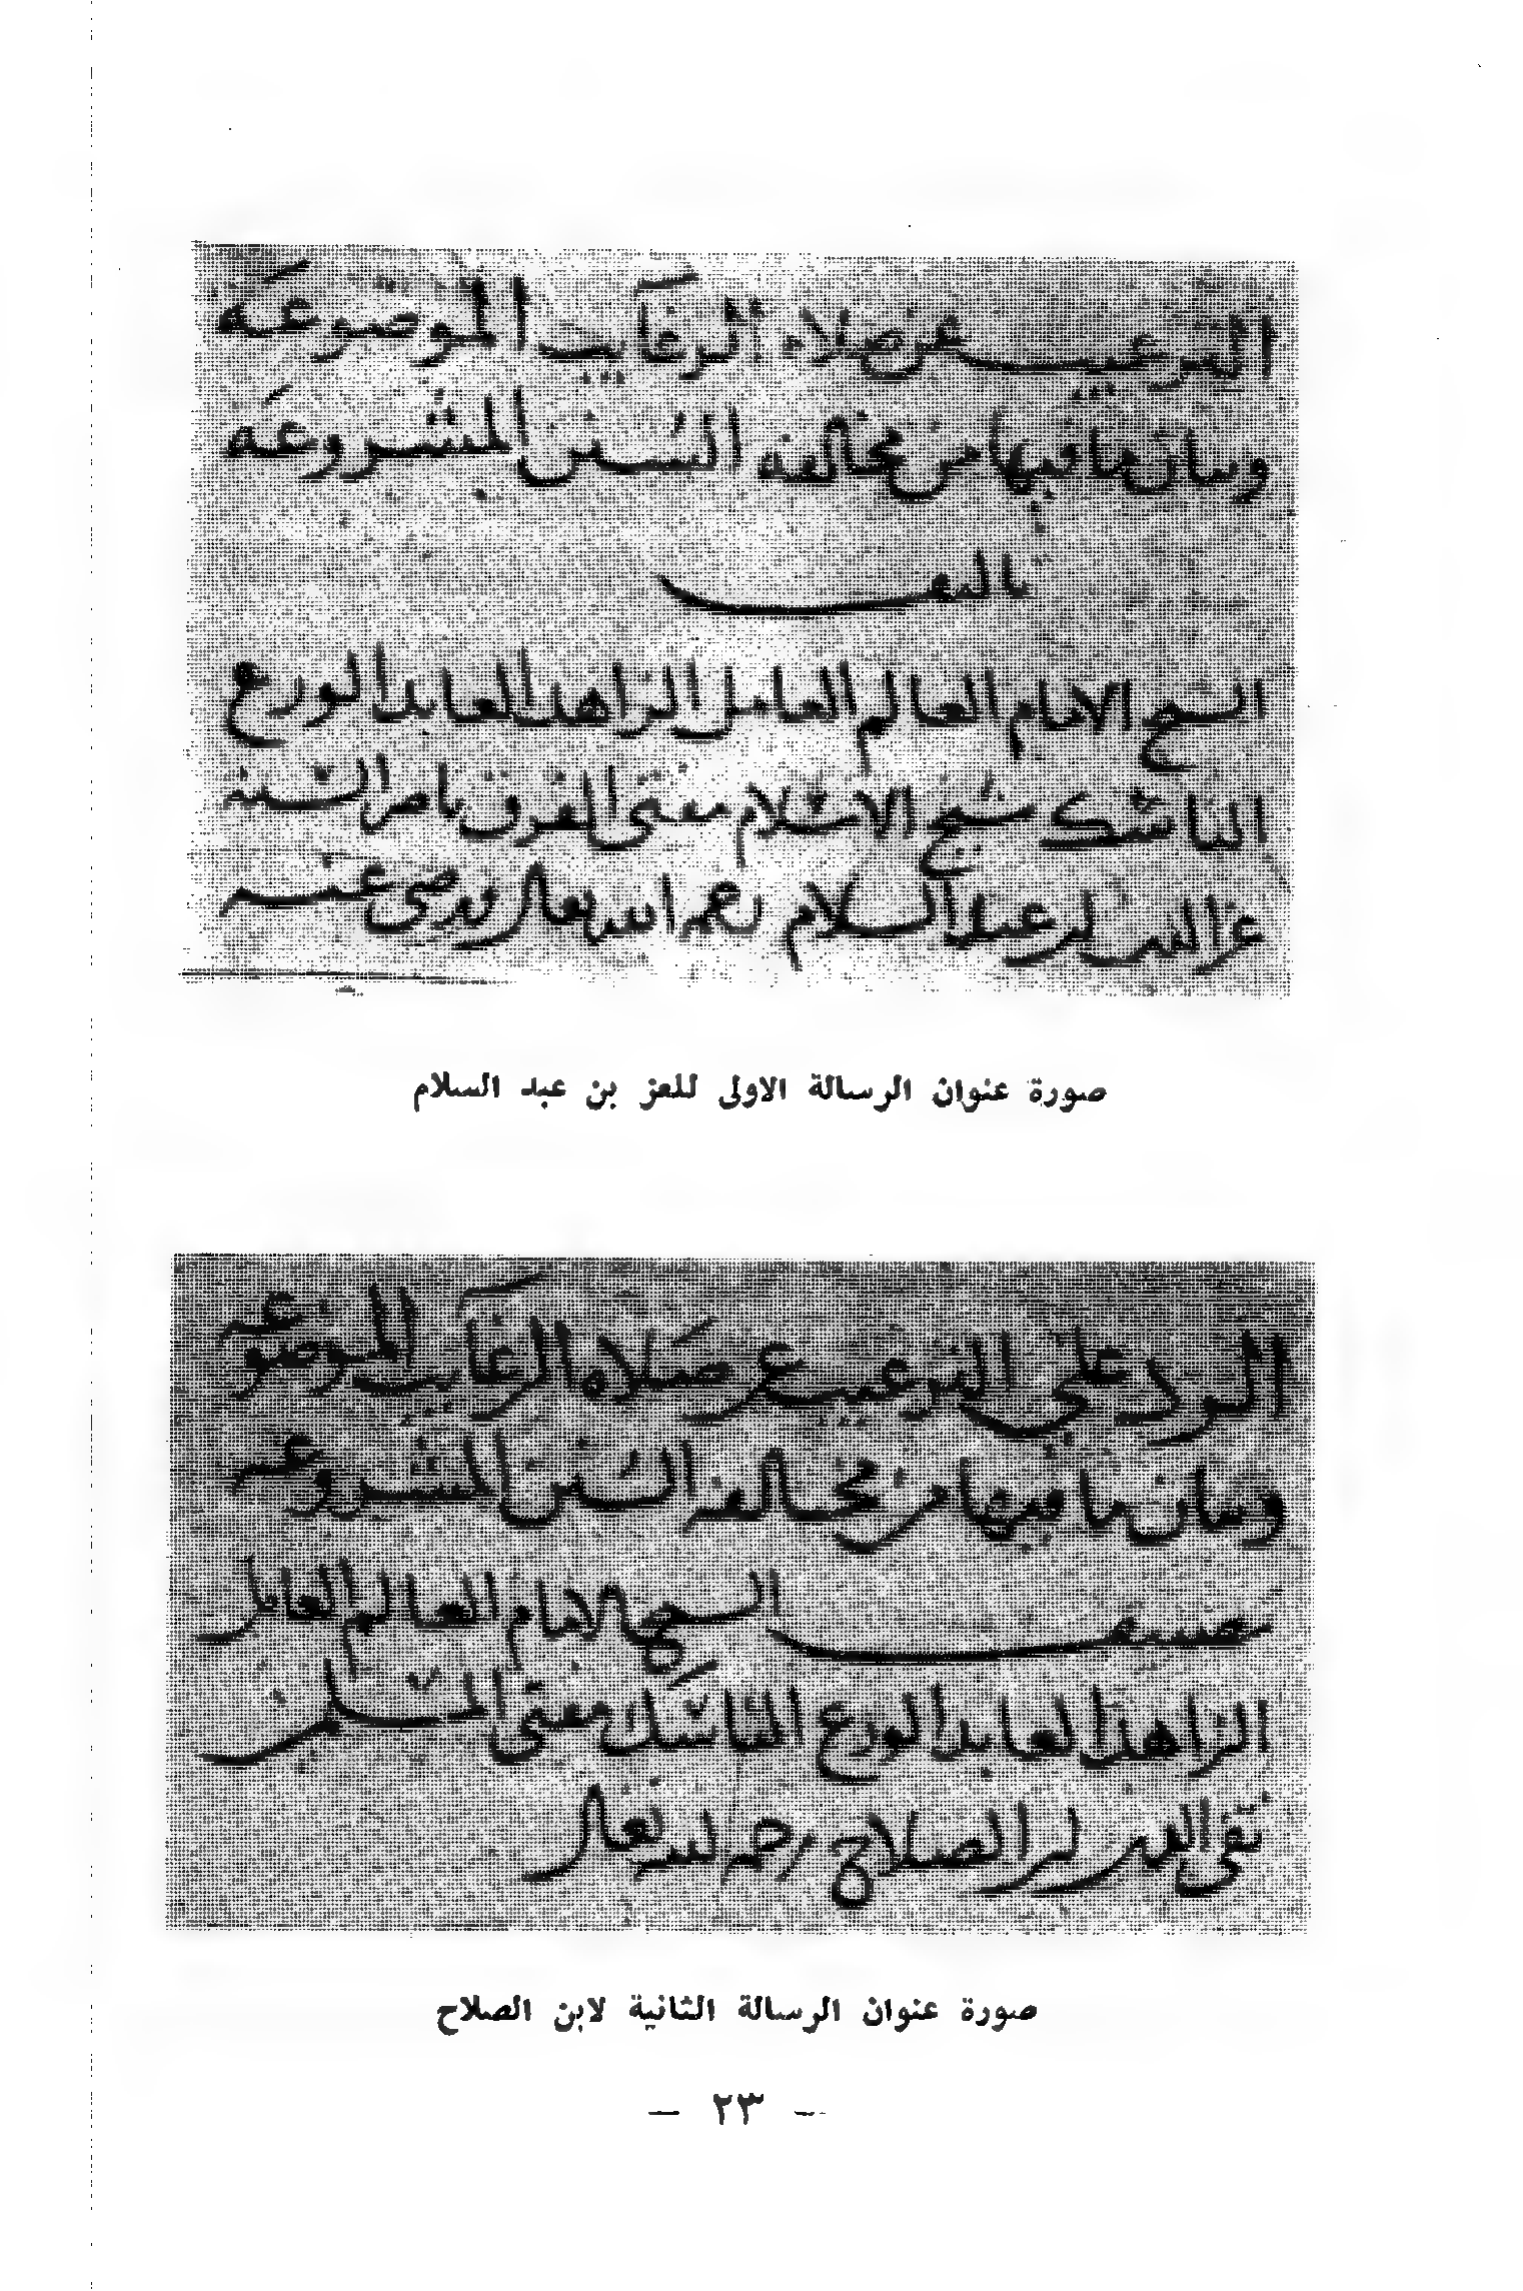 الترغيب عن صلاه الرغايب الموضوعه
وبيان ما فيها من مخالفه السنن المشروعه
تاليف
الشيخ الامام العالم العامل الزاهد العابد الورع
الناسك شيخ الاسلام مفتى الفرق ناصر السنه
عز الدين بن عبد السلام رحمه الله تعالى ورضى عنه
صورة عنوان الرسالة الاولى للعز بن عبد السلام
الرد على الترغيب عن صلاه الرغايب الموضوعه
وبيان ما فيها من مخالفه السنن المشروعه
تصنيف الشيخ الامام العالم العامل
الزاهد العابد الورع الناسك مفتى المسلمين
تقى الدين بن الصلاح رحمه الله تعالى
صورة عنوان الرسالة الثانية لابن الصلاح
— ٢٣ —